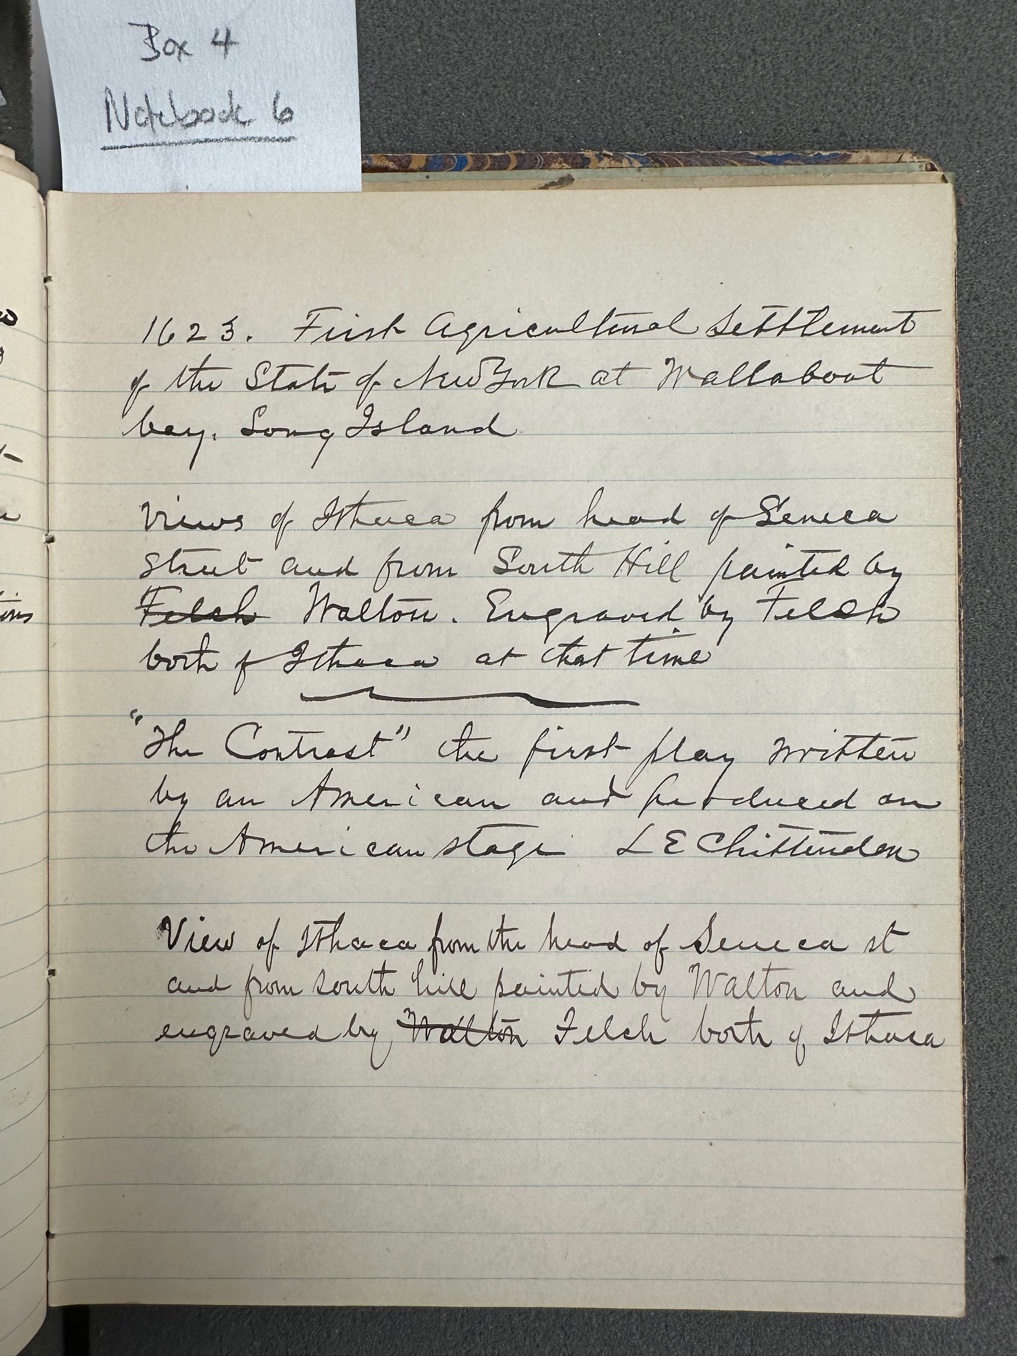 Box 4
Notebook 6
1623. First Agricultural Settlement
of the State of New York at Wallabout
bay. Long Island
Views of Ithaca from head of Seneca
Street and from South Hill painted by
Felch Walton. Engraved by Felch
both of Ithaca at that time
"The Contrast" the first play written
by an American and produced on
the American stage L E Chittenden
View of Ithaca from the head of Seneca st
and from south hill painted by Walton and
engraved by Walton Felch both of Ithaca